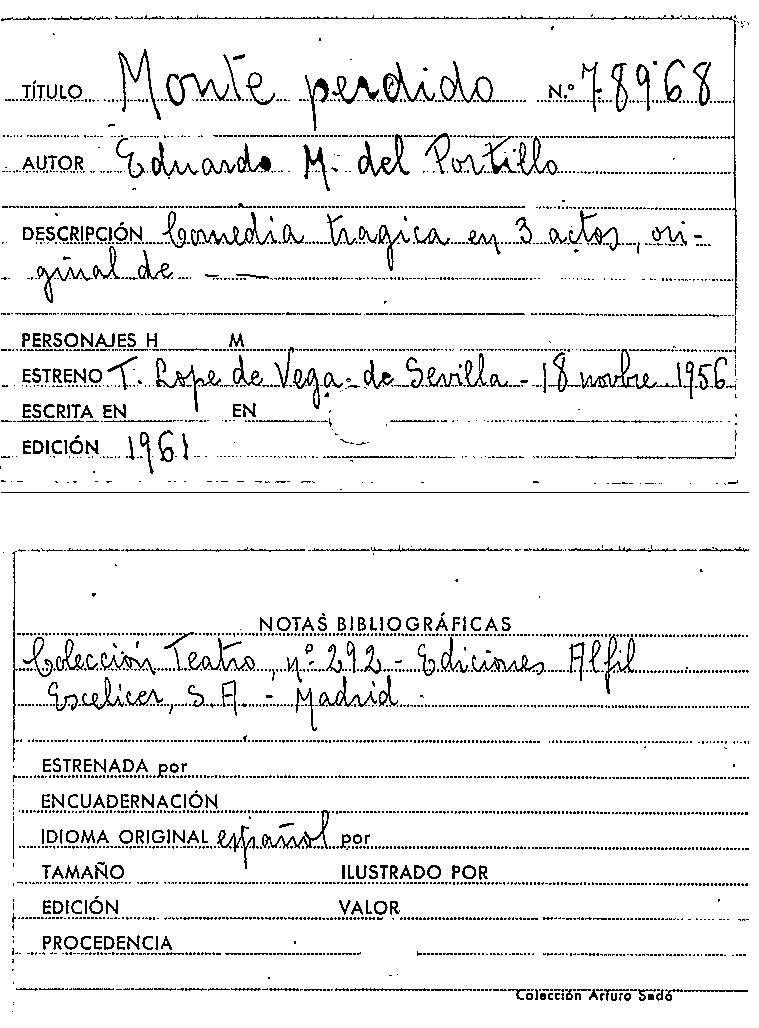 TÍTULO Monte perdido N.º 78968
AUTOR Eduardo M. del Portillo
DESCRIPCIÓN Comedia tragica en 3 actos, ori-
ginal de — —
PERSONAJES H M
ESTRENO T. Lope de Vega - de Sevilla - 18 novbre 1956
ESCRITA EN EN
EDICIÓN 1961
NOTAS BIBLIOGRÁFICAS
Colección Teatro, nº 292 - Ediciones Alfil
Escelicer, S.A. - Madrid
ESTRENADA por
ENCUADERNACIÓN
IDIOMA ORIGINAL español por
TAMAÑO ILUSTRADO POR
EDICIÓN VALOR
PROCEDENCIA
Colección Arturo Sedó